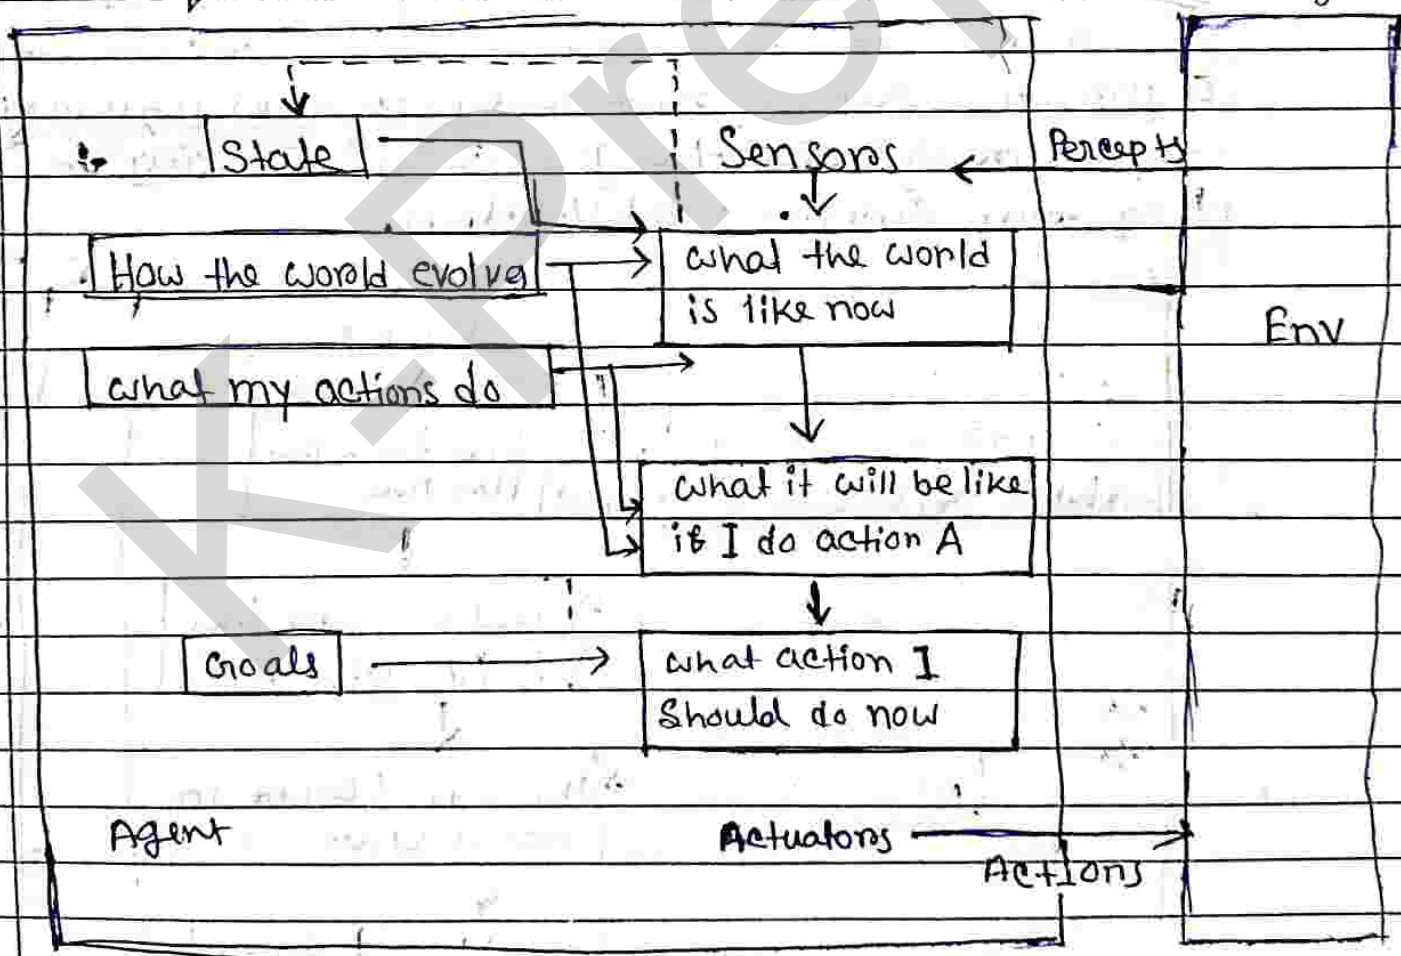 State
Sensors
Percepts
How the world evolve
what the world
is like now
Env
what my actions do
what it will be like
if I do action A
Goals
what action I
Should do now
Agent
Actuators
Actions
K-Pre